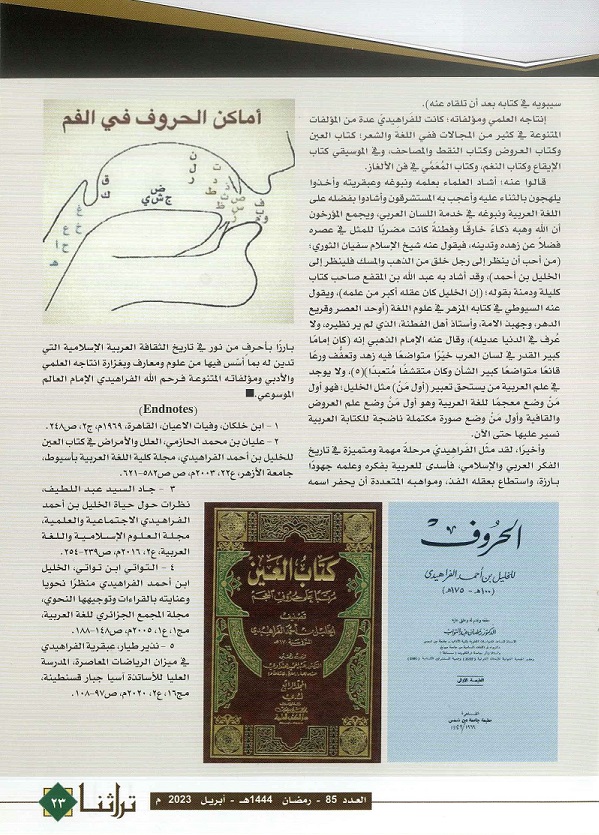 سيبويه في كتابه بعد أن تلقاه عنه).
إنتاجه العلمي ومؤلفاته؛ كانت للفراهيدي عدة من المؤلفات
المتنوعة في كثير من المجالات ففي اللغة والشعر؛ كتاب العين
وكتاب العروض وكتاب النقط والمصاحف، وفي الموسيقي كتاب
الإيقاع وكتاب النغم، وكتاب المُعَمّي في فن الألغاز.
قالوا عنه؛ أشاد العلماء بعلمه ونبوغه وعبقريته وأخذوا
يلهجون بالثناء عليه وأعجب به المستشرقون وأشادوا بفضله على
اللغة العربية ونبوغه في خدمة اللسان العربي، ويجمع المؤرخون
أن الله وهبه ذكاءً خارقًا وفطنةً كانت مضربًا للمثل في عصره
فضلًا عن زهده وتدينه، فيقول عنه شيخ الإسلام سفيان الثوري؛
(من أحب أن ينظر إلى رجل خلق من الذهب والمسك فلينظر إلى
الخليل بن أحمد)، وقد أشاد به عبد الله بن المقفع صاحب كتاب
كليلة ودمنة بقوله؛ (إن الخليل كان عقله أكبر من علمه)، ويقول
عنه السيوطي في كتابه المزهر في علوم اللغة (أوحد العصر وقريع
الدهر، وجهبذ الامة، وأستاذ أهل الفطنة، الذي لم ير نظيره، ولا
عُرف في الدنيا عديله)، وقال عنه الإمام الذهبي إنه (كان إمامًا
كبير القدر في لسان العرب خيّرًا متواضعًا فيه زهد وتعفّف ورعًا
قانعًا متواضعًا كبير الشأن وكان متقشفًا مُتعبدًا) (٥)، ولا يوجد
في علم العربية من يستحق تعبير (أول مَنْ) مثل الخليل؛ فهو أول
مَنْ وضع معجمًا للغة العربية وهو أول مَنْ وضع علم العروض
والقافية وأول مَنْ وضع صورة مكتملة ناضجة للكتابة العربية
نسير عليها حتى الآن.
وأخيرًا، لقد مثل الفراهيديّ مرحلةً مهمة ومتميزة في تاريخ
الفكر العربي والإسلامي، فأسدى للعربية بفكره وعلمه جهودا
بارزة، واستطاع بعقله الفذ، ومواهبه المتعددة أن يحفر اسمه
أماكن الحروف في الفم
ق
ك
ض
ج ش ي
ن
ل
ر
بارزًا بأحرف من نور في تاريخ الثقافة العربية الإسلامية التي
تدين له بما أسّس فيها من علوم ومعارف وبغزارة إنتاجه العلمي
والأدبي ومؤلفاته المتنوعة فرحم الله الفراهيدي الإمام العالم
الموسوعي.■
(Endnotes)
١ - ابن خلكان، وفيات الاعيان، القاهرة، ١٩٦٩م، ج٢، ص٢٤٨.
٢ – عليان بن محمد الحازمي، العلل والأمراض في كتاب العين
للخليل بن أحمد الفراهيدي، مجلة كلية اللغة العربية بأسيوط،
جامعة الأزهر، ع٢٢، ٢٠٠٣م، ص ص٥٨٢-٦٢١.
٣ - جاد السيد عبد اللطيف،
نظرات حول حياة الخليل بن أحمد
الفراهيدي الاجتماعية والعلمية،
مجلة العلوم الإسلامية واللغة
العربية، ع٢، ٢٠١٦م، ص٢٣٩-٢٥٤.
٤ - التواتي ابن تواتي، الخليل
ابن أحمد الفراهيدي منظرًا نحويا
وعنايته بالقراءات وتوجيهها النحوي،
مجلة المجمع الجزائري للغة العربية،
مج١، ع١، ٢٠٠٥م، ص١٤٨-١٨٨.
٥ – نذير طيار، عبقرية الفراهيدي
في ميزان الرياضات المعاصرة، المدرسة
العليا للأساتذة أسيا جبار قسنطينة،
مج١٦، ع٢، ٢٠٢٠م، ص٩٧-١٠٨.
كتاب العين
مرتبا على حروف المعجم
تصنيف
الخليل بن أحمد الفراهيدي
المجلد الرابع
الحروف
للخليل بن أحمد الفراهيدي
(١٠٠هـ - ١٧٥هـ)
الدكتور رمضان عبد التواب
الطبعة الأولى
القاهرة
مطبعة جامعة عين شمس
العدد 85 - رمضان 1444هـ - أبريل 2023 م
تراثنا
٢٣